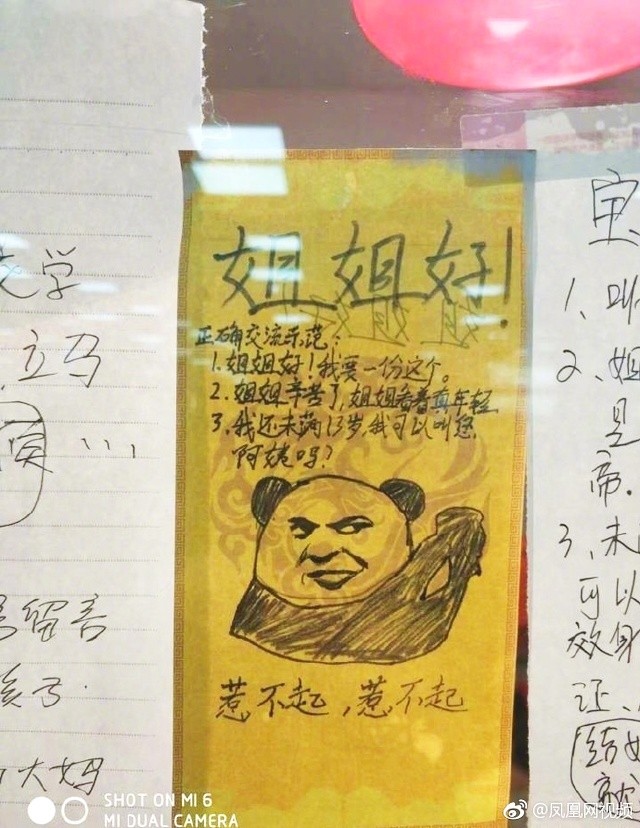 文学
立马
留言
大妈
姐姐好!
正确交流示范:
1.姐姐好!我要一份这个。
2.姐姐辛苦了,姐姐看着真年轻
3.我还未满13岁,我可以叫您
阿姨吗?
惹不起,惹不起
1、叫
2、姐
是
帝.
3、未
可以
效身
证、
结
就
SHOT ON MI 6
MI DUAL CAMERA
@凤凰网视频